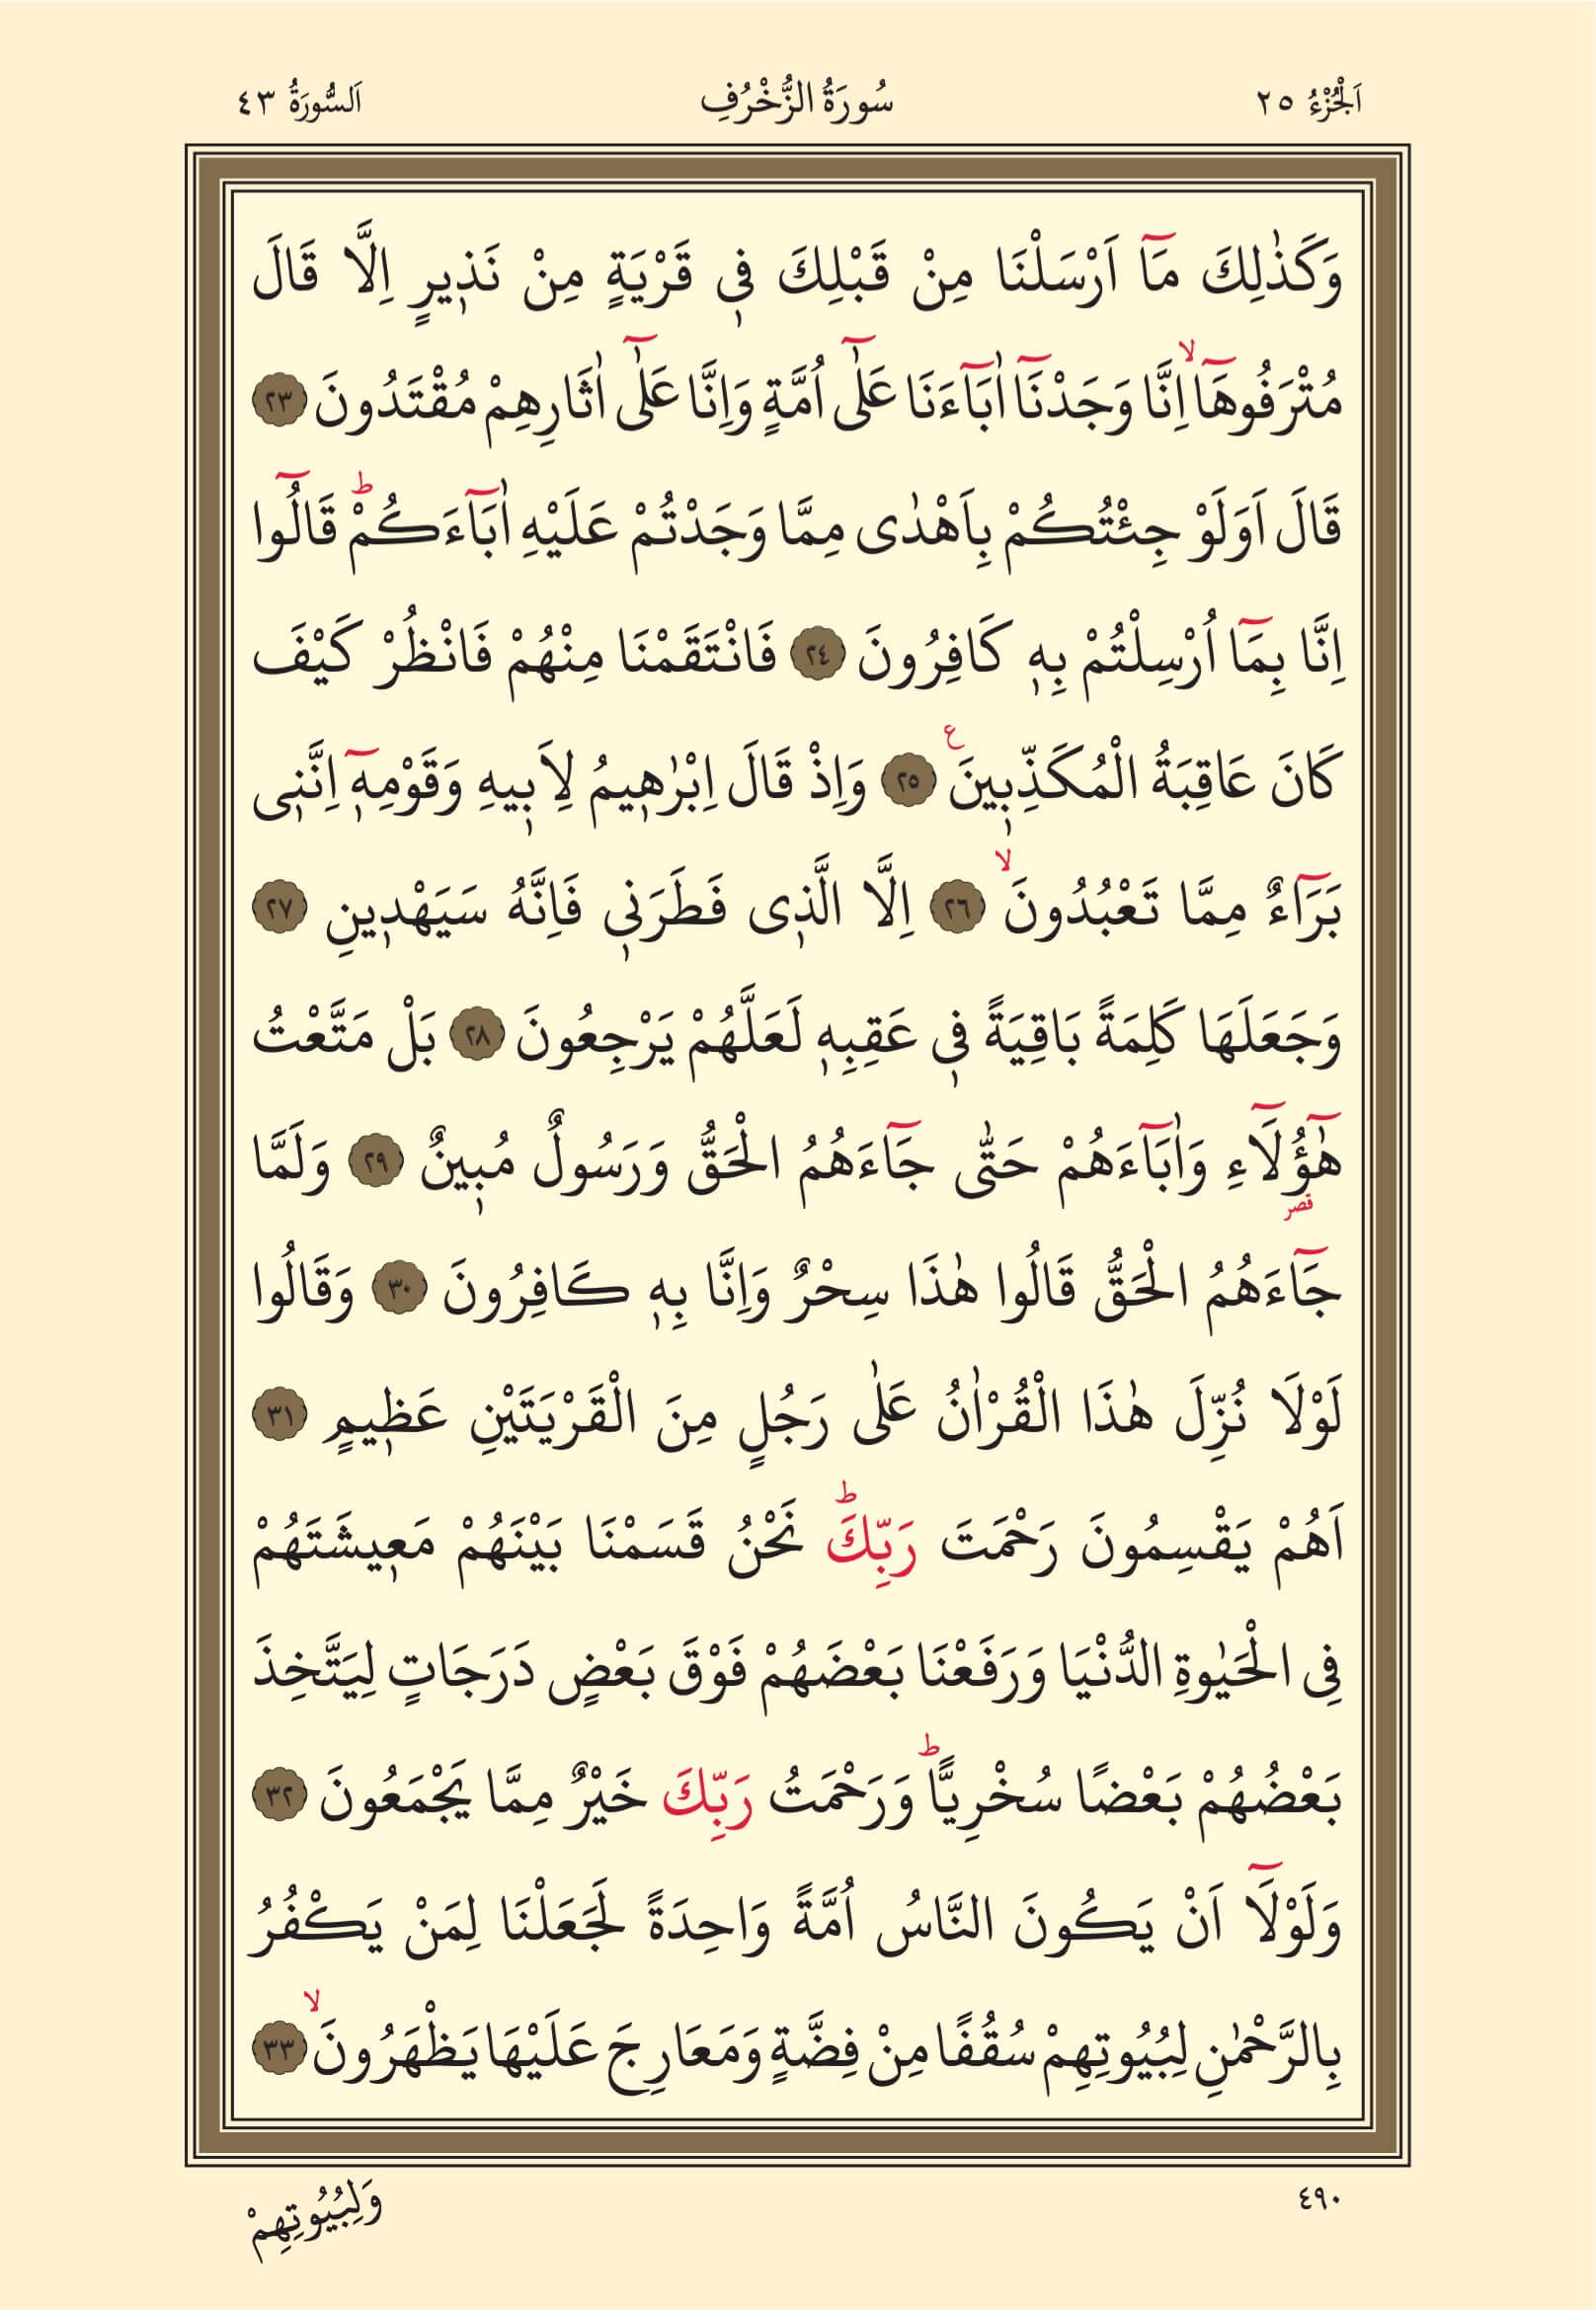 اَلْجُزْءُ ٢٥
سُورَةُ الزُّخْرُفِ
اَلسُّورَةُ ٤٣
وَكَذٰلِكَ مَٓا اَرْسَلْنَا مِنْ قَبْلِكَ ف۪ي قَرْيَةٍ مِنْ نَذ۪يرٍ اِلَّا قَالَ
مُتْرَفُوهَٓاۙ اِنَّا وَجَدْنَٓا اٰبَٓاءَنَا عَلٰٓى اُمَّةٍ وَاِنَّا عَلٰٓى اٰثَارِهِمْ مُقْتَدُونَ ٢٣
قَالَ اَوَلَوْ جِئْتُكُمْ بِاَهْدٰى مِمَّا وَجَدْتُمْ عَلَيْهِ اٰبَٓاءَكُمْۜ قَالُٓوا
اِنَّا بِمَٓا اُرْسِلْتُمْ بِه۪ كَافِرُونَ ٢٤ فَانْتَقَمْنَا مِنْهُمْ فَانْظُرْ كَيْفَ
كَانَ عَاقِبَةُ الْمُكَذِّب۪ينَ ع ٢٥ وَاِذْ قَالَ اِبْرٰه۪يمُ لِاَب۪يهِ وَقَوْمِه۪ٓ اِنَّن۪ي
بَرَٓاءٌ مِمَّا تَعْبُدُونَۙ ٢٦ اِلَّا الَّذ۪ي فَطَرَن۪ي فَاِنَّهُ سَيَهْد۪ينِ ٢٧
وَجَعَلَهَا كَلِمَةً بَاقِيَةً ف۪ي عَقِبِه۪ لَعَلَّهُمْ يَرْجِعُونَ ٢٨ بَلْ مَتَّعْتُ
هٰٓؤُ۬لَٓاءِ وَاٰبَٓاءَهُمْ حَتّٰى جَٓاءَهُمُ الْحَقُّ وَرَسُولٌ مُب۪ينٌ ٢٩ وَلَمَّا
قصر
جَٓاءَهُمُ الْحَقُّ قَالُوا هٰذَا سِحْرٌ وَاِنَّا بِه۪ كَافِرُونَ ٣٠ وَقَالُوا
لَوْلَا نُزِّلَ هٰذَا الْقُرْاٰنُ عَلٰى رَجُلٍ مِنَ الْقَرْيَتَيْنِ عَظ۪يمٍ ٣١
اَهُمْ يَقْسِمُونَ رَحْمَتَ رَبِّكَۜ نَحْنُ قَسَمْنَا بَيْنَهُمْ مَع۪يشَتَهُمْ
فِي الْحَيٰوةِ الدُّنْيَا وَرَفَعْنَا بَعْضَهُمْ فَوْقَ بَعْضٍ دَرَجَاتٍ لِيَتَّخِذَ
بَعْضُهُمْ بَعْضًا سُخْرِيًّاۜ وَرَحْمَتُ رَبِّكَ خَيْرٌ مِمَّا يَجْمَعُونَ ٣٢
وَلَوْلَٓا اَنْ يَكُونَ النَّاسُ اُمَّةً وَاحِدَةً لَجَعَلْنَا لِمَنْ يَكْفُرُ
بِالرَّحْمٰنِ لِبُيُوتِهِمْ سُقُفًا مِنْ فِضَّةٍ وَمَعَارِجَ عَلَيْهَا يَظْهَرُونَۙ ٣٣
٤٩٠
وَلِبُيُوتِهِمْ